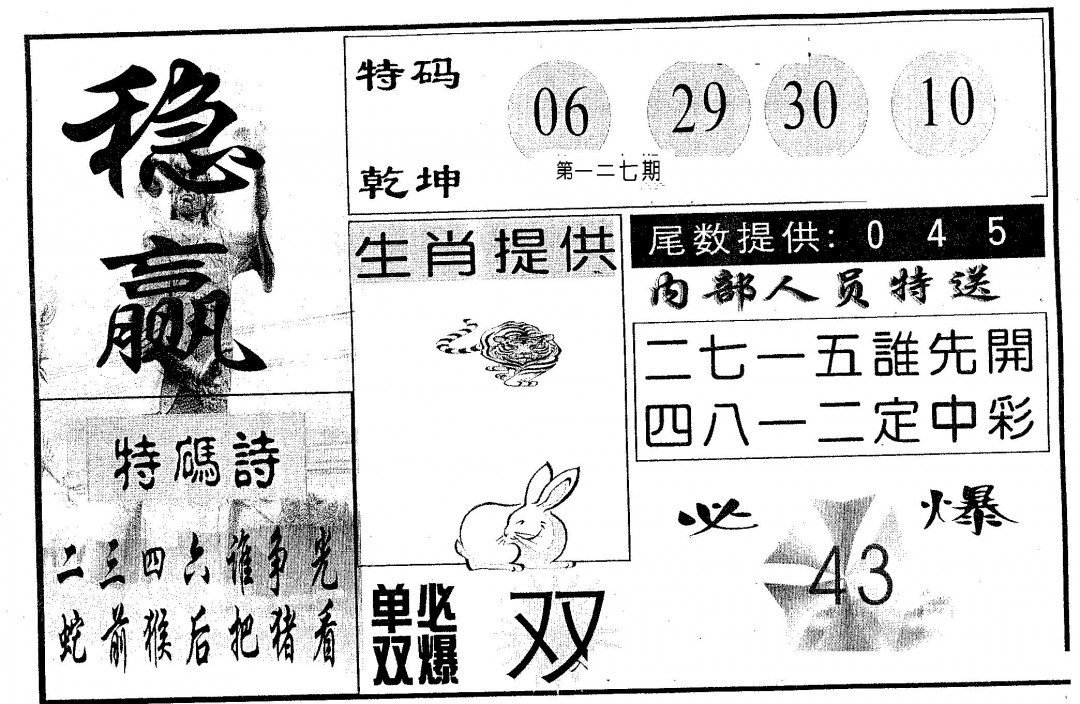 稳赢
特码
乾坤
06 29 30 10
第一二七期
生肖提供
尾数提供: 0 4 5
内部人员特送
二七一五誰先開
四八一二定中彩
特碼詩
二三四六谁争光
蛇前猴后把猪看
必爆
43
单双
必爆
双